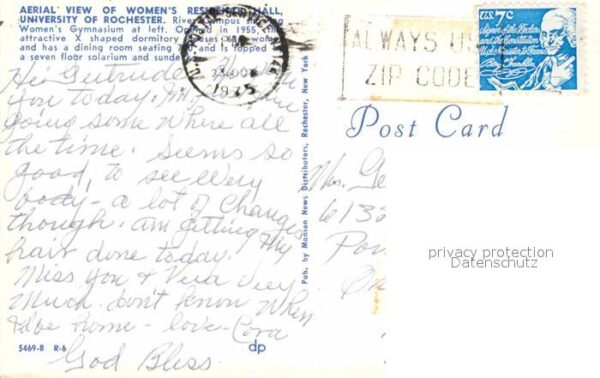 AERIAL VIEW OF WOMEN'S RESIDENCE HALL,
UNIVERSITY OF ROCHESTER. River Campus
Women's Gymnasium at left. Opened in 1955, this
attractive X shaped dormitory houses women
and has a dining room seating and is topped
a seven floor solarium and sundeck.
Hi Gertrude,
you today.
going some where all
the time. Seems so
good, to see every
body - a lot of changes
though. am getting my
hair done today.
Miss You & Vera very
Much. don't know When
I'll be home - love - Cora
God Bless
5469-B R-6
dp
Pub. by Manson News Distributors, Rochester, New York
1975
ALWAYS USE
ZIP CODE
U.S. 7c
Signer of the Declaration
of the Constitution
U.S. Minister to France
Ben Franklin
Post Card
Mrs. Ge
613
Po
privacy protection
Datenschutz